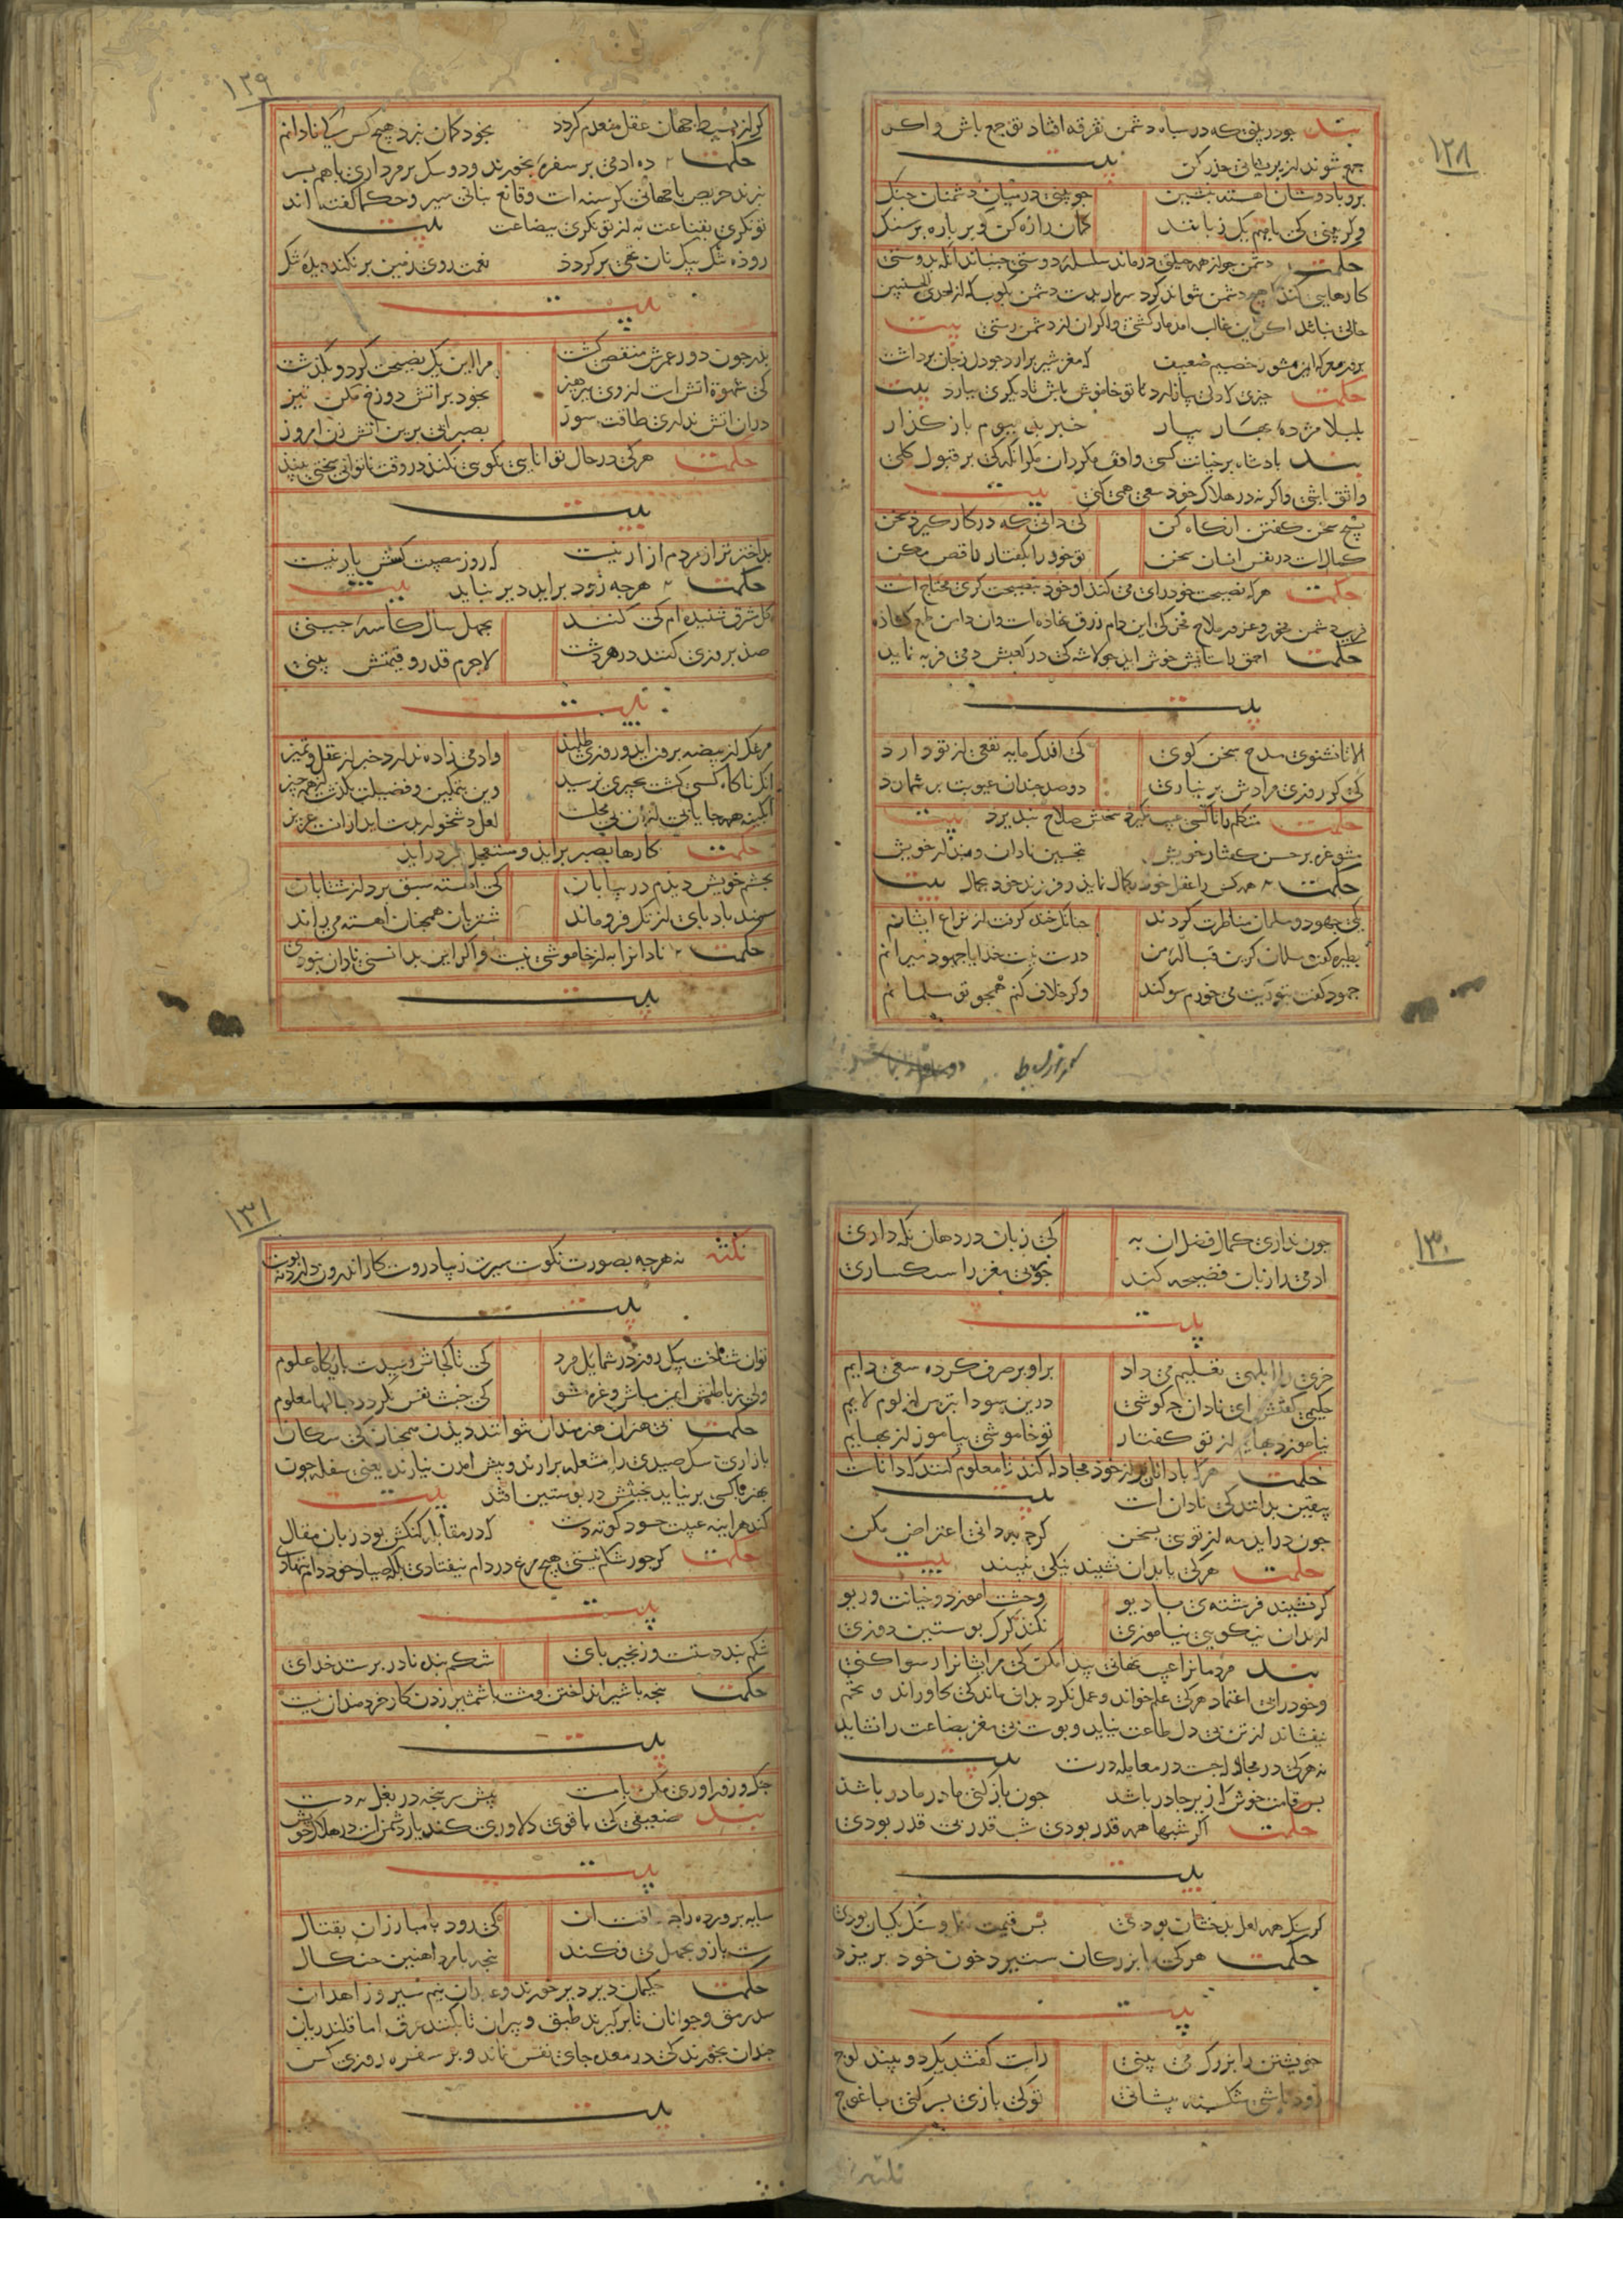 ۱۲۸
پند جو در پنی که در سپاه دشمن تفرقه افتاد تو جمع باش و اکر
جمع شوند از پریشانی حذر کن بیت
برو با دوستان اهسته بنشین جو بینی در میان دشمنان جنک
وکر بینی کی با هم یک زبانند کمان را زه کن و بر باره بر سنک
حکمت دشمن جو از همه حیلتی درماند سلسله دوستی جنباند انکه بدوستی
کارهایی کند کی هیچ دشمن نتواند کرد سر مار بدست دشمن بکوب که از احدی الحسنیین
خالی نباشد اکر این غالب امد مار کشتی و اکر ان از دشمن رستی بیت
بروز معرکه ایمن مشو ز خصم ضعیف که مغز شیر برارد جو دل ز جان برداشت
حکمت خبری که دلی بیازارد تا تو خاموش باش تا دیکری بیارد بیت
بلبلا مژده بهار بیار خبر بد ببوم باز کذار
پند بادشاه بر خیانت کسی واقف مکردان مکر انکه کی بر قبول کلی
واثق باشی واکر نه در هلاک خود سعی همی کنی بیت
بسیج سخن کفتن انکاه کن کی دانی که در کار کیرد سخن
کمال است در نفس انسان سخن تو خود را بکفتار ناقص مکن
حکمت هرک نصیحت خود رای می کند او خود بنصیحت کری محتاج است
فریب دشمن مخور و غرور مداح مخر کی این دام زرق نهاده است و ان دامن طمع کشاده
حکمت احمق را ستایش خوش اید جو لاشه کی در کعبش دمی فربه نماید
بیت
الا تا نشنوی مدح سخن کوی کی اندک مایه نفعی از تو دارد
کی کر روزی مرادش بر نیاری دو صد جندان عیوبت بر شمارد
حکمت متکلم را تا کسی عیب نکیرد سخنش صلاح نبذیرد بیت
مشو غره بر حسن کفتار خویش بتحسین نادان و پندار خویش
حکمت همه کس را عقل خود بکمال نماید و فرزند خود بجمال بیت
یکی جهود و مسلمان مناظرت کردند جنانک خنده کرفت از نزاع ایشانم
بطیره کفت مسلمان کر این قباله من درست نیست خدایا جهود میرانم
جهود کفت بتوریت می خورم سوکند وکر خلاف کنم همجو تو مسلمانم
کر از بسیط
۱۲۹
کر از بسیط جهان عقل منعدم کردد بخود کمان نبرد هیچ کس کی نادانم
حکمت ده ادمی بر سفره بخورند و دو سک بر مرداری با هم بسر
نبرند حریص با جهانی کرسنه است و قانع بنانی سیر و حکما کفته اند
توانکری بقناعت به از توانکری ببضاعت بیت
روده تنک بیک نان تهی بر کردد نعمت روی زمین بر نکند دیده تنک
بیت
بدر جون دور عمرش منقضی کشت مرا این یک نصیحت کرد و بکذشت
کی شهوت اتش است از وی ببرهیز بخود بر اتش دوزخ مکن تیز
در ان اتش نداری طاقت سوز بصبر ابی برین اتش زن امروز
حکمت هرکی در حال توانایی نکویی نکند در وقت ناتوانی سختی بیند
بیت
بد اختر تر از مردم ازار نیست که روز مصیبت کسش یار نیست
حکمت هر جه زود براید دیر نباید بیت
کل شرق شنیده ام کی کنند بجهل سال کاسه جینی
صد بروزی کنند در مردشت لاجرم قدر و قیمتش بینی
بیت
مرغک از بیضه برون اید و روزی طلبد وادمی زاده ندارد خبر از عقل و تمیز
انک ناکاه کسی کشت بجیزی نرسید وین بتمکین و فضیلت بکذشت از همه جیز
ابکینه همه جا یابی از ان بی محلست لعل دشخوار بدست اید از انست عزیز
حکمت کارها بصبر براید و مستعجل بسر دراید
بجشم خویش دیدم در بیابان کی اهسته سبق برد از شتابان
سمند بادبای از تک فرو ماند شتربان همجنان اهسته می راند
حکمت نادانرا به از خاموشی نیست واکر این بدانستی نادان نبودی
بیت
۱۳۰
جون نداری کمال فضل ان به کی زبان در دهان نکه داری
ادمی را زبان فضیحه کند جوز بی مغز را سبکساری
بیت
خری را ابلهی تعلیم می داد براو بر صرف کرده سعی دایم
حکیمی کفتش ای نادان جه کوشی درین سودا بترس از لوم لایم
نیاموزد بهایم از تو کفتار تو خاموشی بیاموز از بهایم
حکمت هرک با دانا تر از خود مجادله کند تا معلوم کنند که داناست
بیقین بدانند کی نادان است بیت
جون دراید مه از تویی بسخن کرجه به دانی اعتراض مکن
حکمت هرکی با بدان نشیند نیکی نبیند بیت
کر نشیند فرشته ی با دیو وحشت اموزد و خیانت و ریو
از بدان نیکویی نیاموزی نکند کرک بوستین دوزی
پند مردمانرا عیب نهانی پیدا مکن کی مر ایشانرا رسوا کنی
و خود را بی اعتماد هرکی علم خواند و عمل نکرد بدان ماند کی کاو راند و تخم
نیفشاند از تن بی دل طاعت نیاید و پوست بی مغز بضاعت را نشاید
نه هرکی در مجادله جست در معامله درست بیت
بس قامت خوش که زیر جادر باشد جون باز کنی مادر مادر باشد
حکمت اکر شبها همه قدر بودی شب قدر بی قدر بودی
بیت
کر سنک همه لعل بدخشان بودی بس قیمت لعل و سنک یکسان بودی
حکمت هرکی با بزرکان ستیزد خون خود بریزد
بیت
خویشتن را بزرک می بینی راست کفتند یک دو بیند لوج
زود باشی شکسته بیشانی تو کی بازی بسر کنی با غوج
۱۳۱
نکته نه هرجه بصورت نکوست سیرت زیبا دروست کار اندرون دارد نه پوست
بیت
توان شناخت بیک روز در شمایل مرد کی تا کجاش رسیدست بایکاه علوم
ولی ز باطنش ایمن مباش و غره مشو کی خبث نفس نکردد بسالها معلوم
حکمت بی هنران هنرمندان نتوانند دیدن همجنان کی سکان
بازاری سک صیدی را مشعله برارند و بیش امدن نیارند یعنی سفله جون
بهنر با کسی بر نیاید بخبثش در پوستین افتد بیت
کند هراینه غیبت حسود کوته دست که در مقابله کنکش بود زبان مقال
حکمت کر جور شکم نیستی هیچ مرغ در دام نیفتادی بلکه صیاد خود دام ننهادی
بیت
شکم بند دستست و زنجیر بای شکم بنده نادر برستد خدای
حکمت بنجه با شیر انداختن و مشت با شمشیر زدن کار خردمندان نیست
بیت
جنک و زوراوری مکن با مست پیش سر پنجه در بغل نه دست
پند ضعیفی کی با قوی دلاوری کند یار دشمن است در هلاک خویش
بیت
سایه برورده را جه طاقت ان کی رود با مبارزان بقتال
سست بازو بجهل می فکند بنجه با مرد اهنین جنکال
حکمت حکیمان دیر دیر خورند و عابدان نیم سیر و زاهدان
سد رمق و جوانان تا برکیرند طبق و بیران تا بکنند عرق اما قلندریان
جندان بخورند کی در معده جای نفس نماند و بر سفره روزی کس
بیت